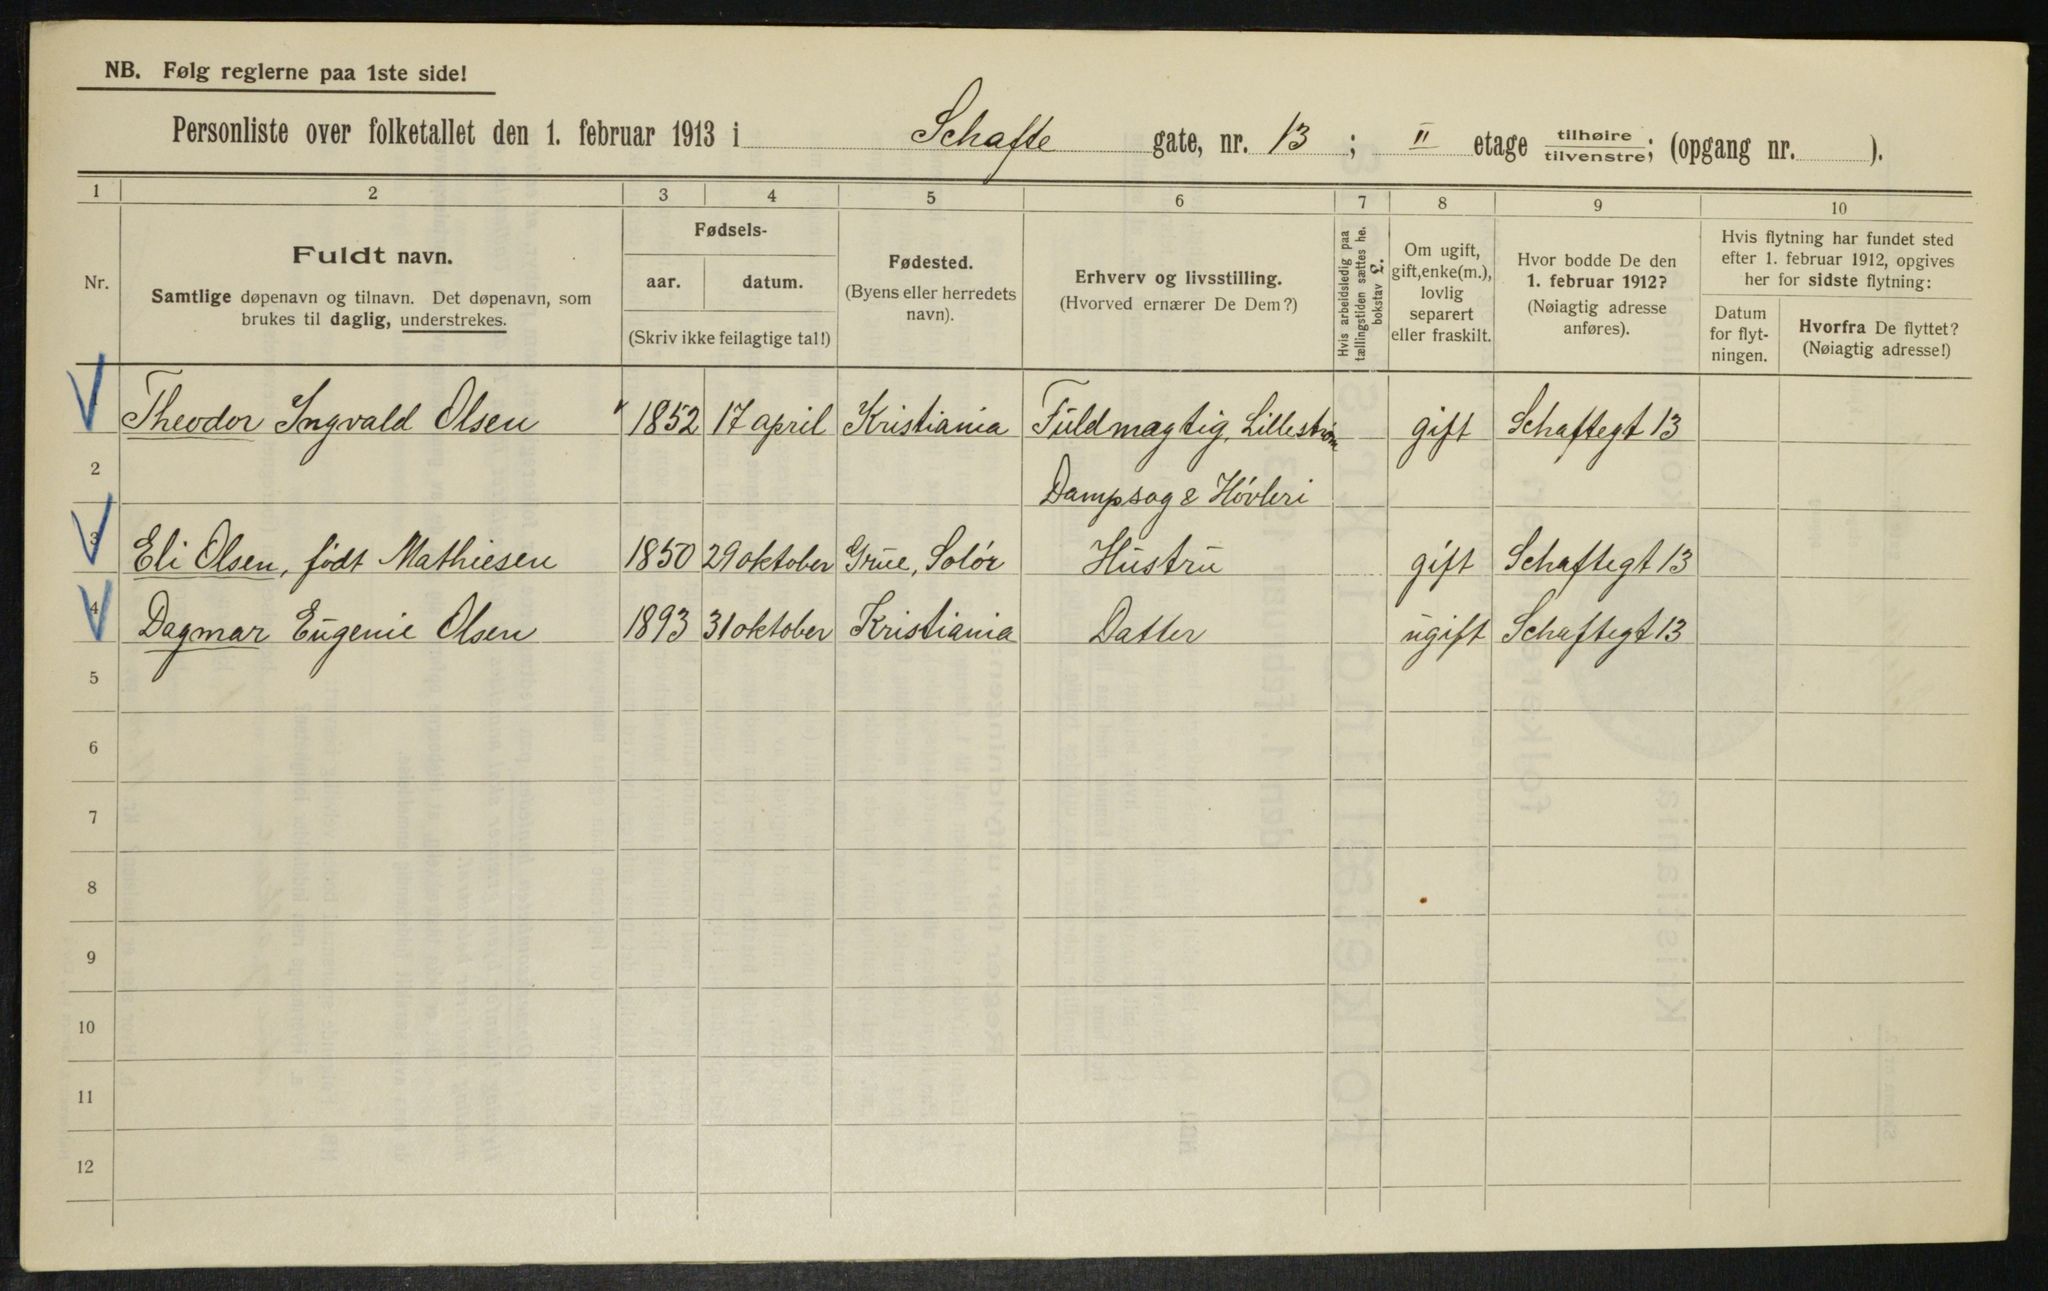 NB. Følg reglerne paa 1ste side!
Personliste over folketallet den 1. februar 1913 i Schafte gate, nr. 13 ; II etage tilhøire / tilvenstre ; (opgang nr. ).
1 2 3 4 5 6 7 8 9 10
Nr.
Fuldt navn.
Samtlige døpenavn og tilnavn. Det døpenavn, som
brukes til daglig, understrekes.
Fødsels-
aar. datum.
(Skriv ikke feilagtige tal!)
Fødested.
(Byens eller herredets
navn).
Erhverv og livsstilling.
(Hvorved ernærer De Dem?)
Hvis arbeidsledig paa
tællingstiden sættes he.
bokstav L.
Om ugift,
gift, enke(m.),
lovlig
separert
eller fraskilt.
Hvor bodde De den
1. februar 1912?
(Nøiagtig adresse
anføres).
Hvis flytning har fundet sted
efter 1. februar 1912, opgives
her for sidste flytning:
Datum
for flyt-
ningen.
Hvorfra De flyttet?
(Nøiagtig adresse!)
Theodor Ingvald Olsen 1852 17 april Kristiania Fuldmægtig, Lillestrøm gift Schaftegt 13
2 Dampsag & Høvleri
3 Eli Olsen, født Mathiesen 1850 29 oktober Grue, Solør Hustru gift Schaftegt 13
4 Dagmar Eugenie Olsen 1893 31 oktober Kristiania Datter ugift Schaftegt 13
5
6
7
8
9
10
11
12